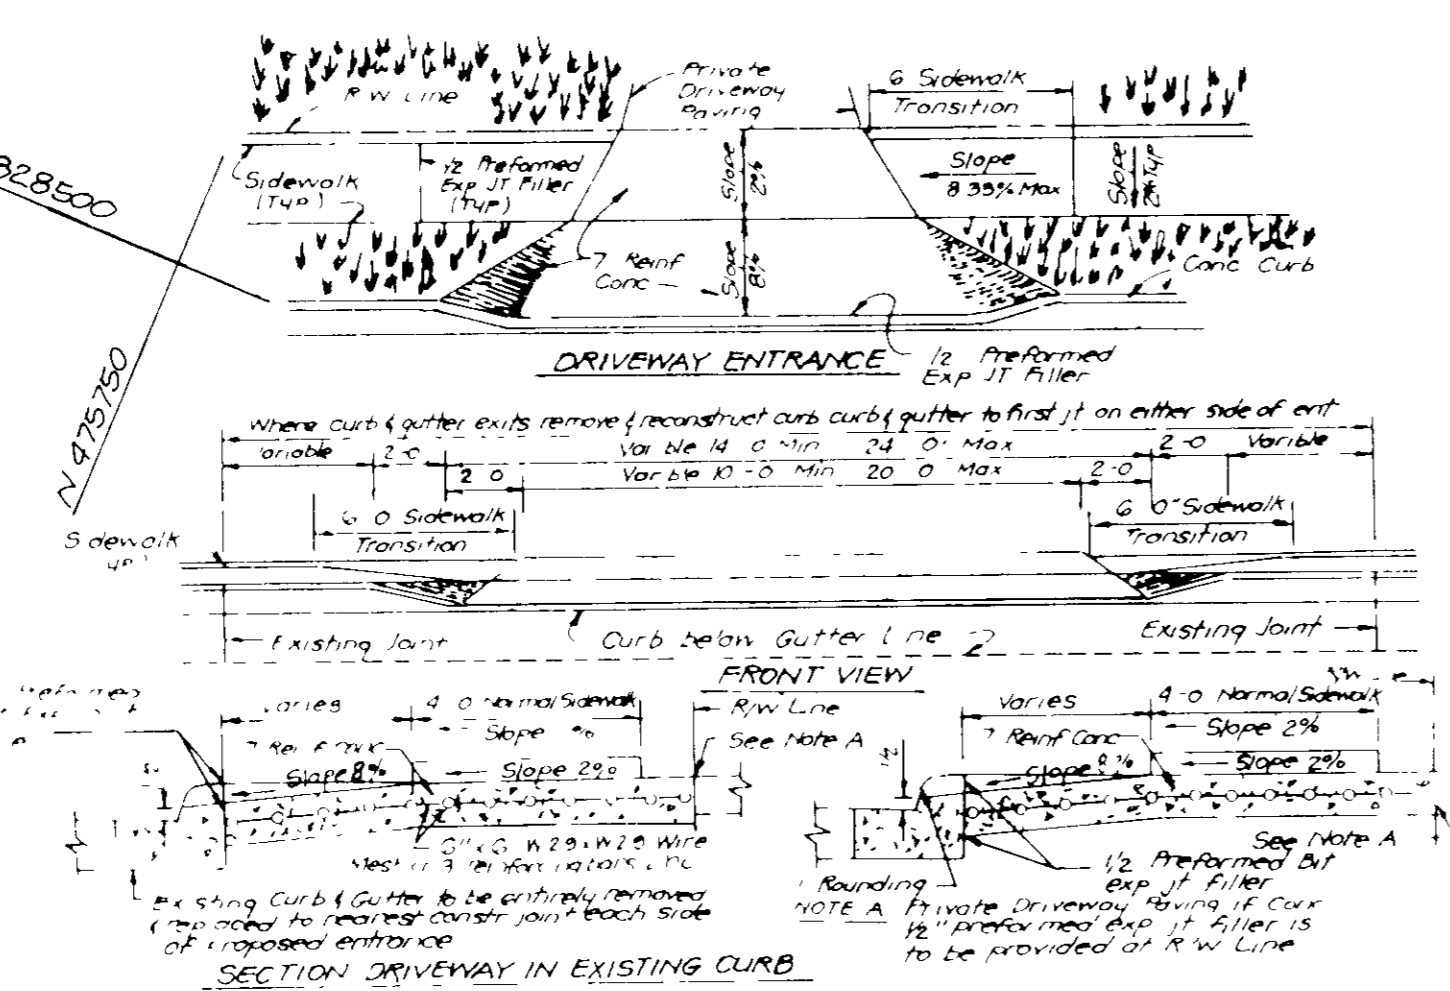 R W Line
Private
Driveway
Paving
6 Sidewalk
Transition
328500
Sidewalk
(Typ)
1/2 Preformed
Exp JT Filler
(Typ)
Slope
2%
Slope
8.33% Max
Slope
2% Typ
7 Reinf
Conc
Slope
8%
Conc Curb
DRIVEWAY ENTRANCE
1/2 Preformed
Exp JT Filler
N 475750
Where curb & gutter exits remove & reconstruct curb curb & gutter to first jt on either side of ent
Variable
2-0
Var ble 14 0 Min 24 0' Max
2-0
Varible
2 0
Var ble 10-0 Min 20 0 Max
2-0
6 0 Sidewalk
Transition
6 0" Sidewalk
Transition
S dewalk
Existing Joint
Curb below Gutter L ne
Existing Joint
FRONT VIEW
varies
4-0 Normal Sidewalk
Slope %
R/W Line
See Note A
Slope 8%
Slope 2%
6" x 6 W29 x W29 Wire
Ex sting Curb & Gutter to be entirely removed
& rep aced to nearest constr joint each side
of proposed entrance
SECTION DRIVEWAY IN EXISTING CURB
Varies
4-0 Normal Sidewalk
Slope 2%
7 Reinf Conc
1/2
Slope 8%
Slope 2%
See Note A
1/2 Preformed Bit
exp jt filler
Rounding
NOTE A Private Driveway Paving if Conc
1/2" preformed exp jt filler is
to be provided at R W Line